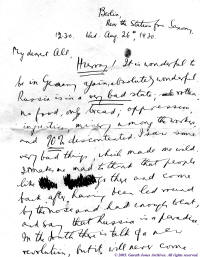 Berlin,
Near the Station for Saxony.
12.30. Wed. Aug. 26th 1930.
My dearest All.
Hurray! It is wonderful to
be in Germany again, absolutely wonderful.
Russia is in a very bad state, rotten,
no food, only bread; oppression,
injustice, misery among the workers
and 90% discontented. I saw some
very bad things, which made me wild
to think that people
like go there and come
back, after having been led round
by the nose and had enough to eat,
and say that Russia is a paradise.
In the South there is talk of a new
revolution, but it will never come
© 2003. Gareth Jones Archives. All Rights Reserved.